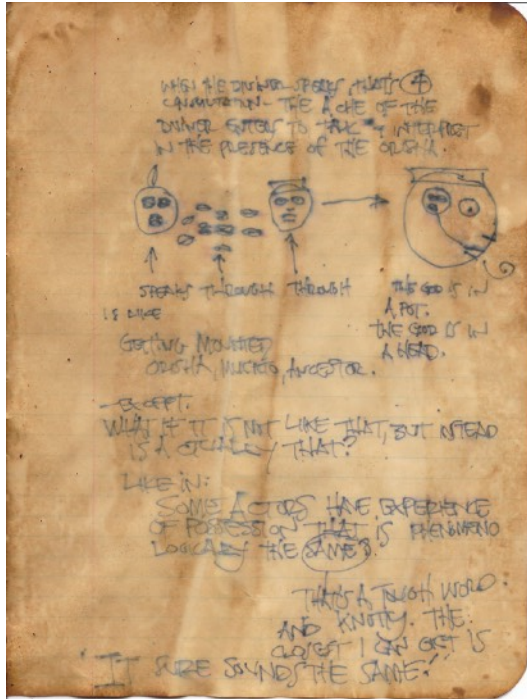 WHEN THE DIVINER SPEAKS, THAT'S 4
CANMUTATION - THE ACHE OF THE
DIVINER ENTERS TO TALK & INTERPRET
IN THE PRESENCE OF THE ORISHA.
SPEAKS THROUGH THROUGH
IS LIKE
GETTING MOUNTED
ORISHA, ANCESTOR.
THE GOD IS IN
A POT.
THE GOD IS IN
A HEAD.
- EXCEPT.
WHAT IF IT IS NOT LIKE THAT, BUT INSTEAD
IS ACTUALLY THAT?
LIKE IN:
SOME ACTORS HAVE EXPERIENCE
OF POSSESSION THAT IS PHENOMENO
LOGICALLY THE SAME?
THAT'S A TOUGH WORD.
AND KNOTTY. THE
CLOSEST I CAN GET IS
"IT SURE SOUNDS THE SAME."